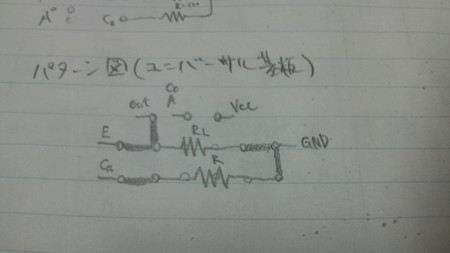 パターン図(ユニバーサル基板)
out Co A Vcc
E RL GND
Ca R